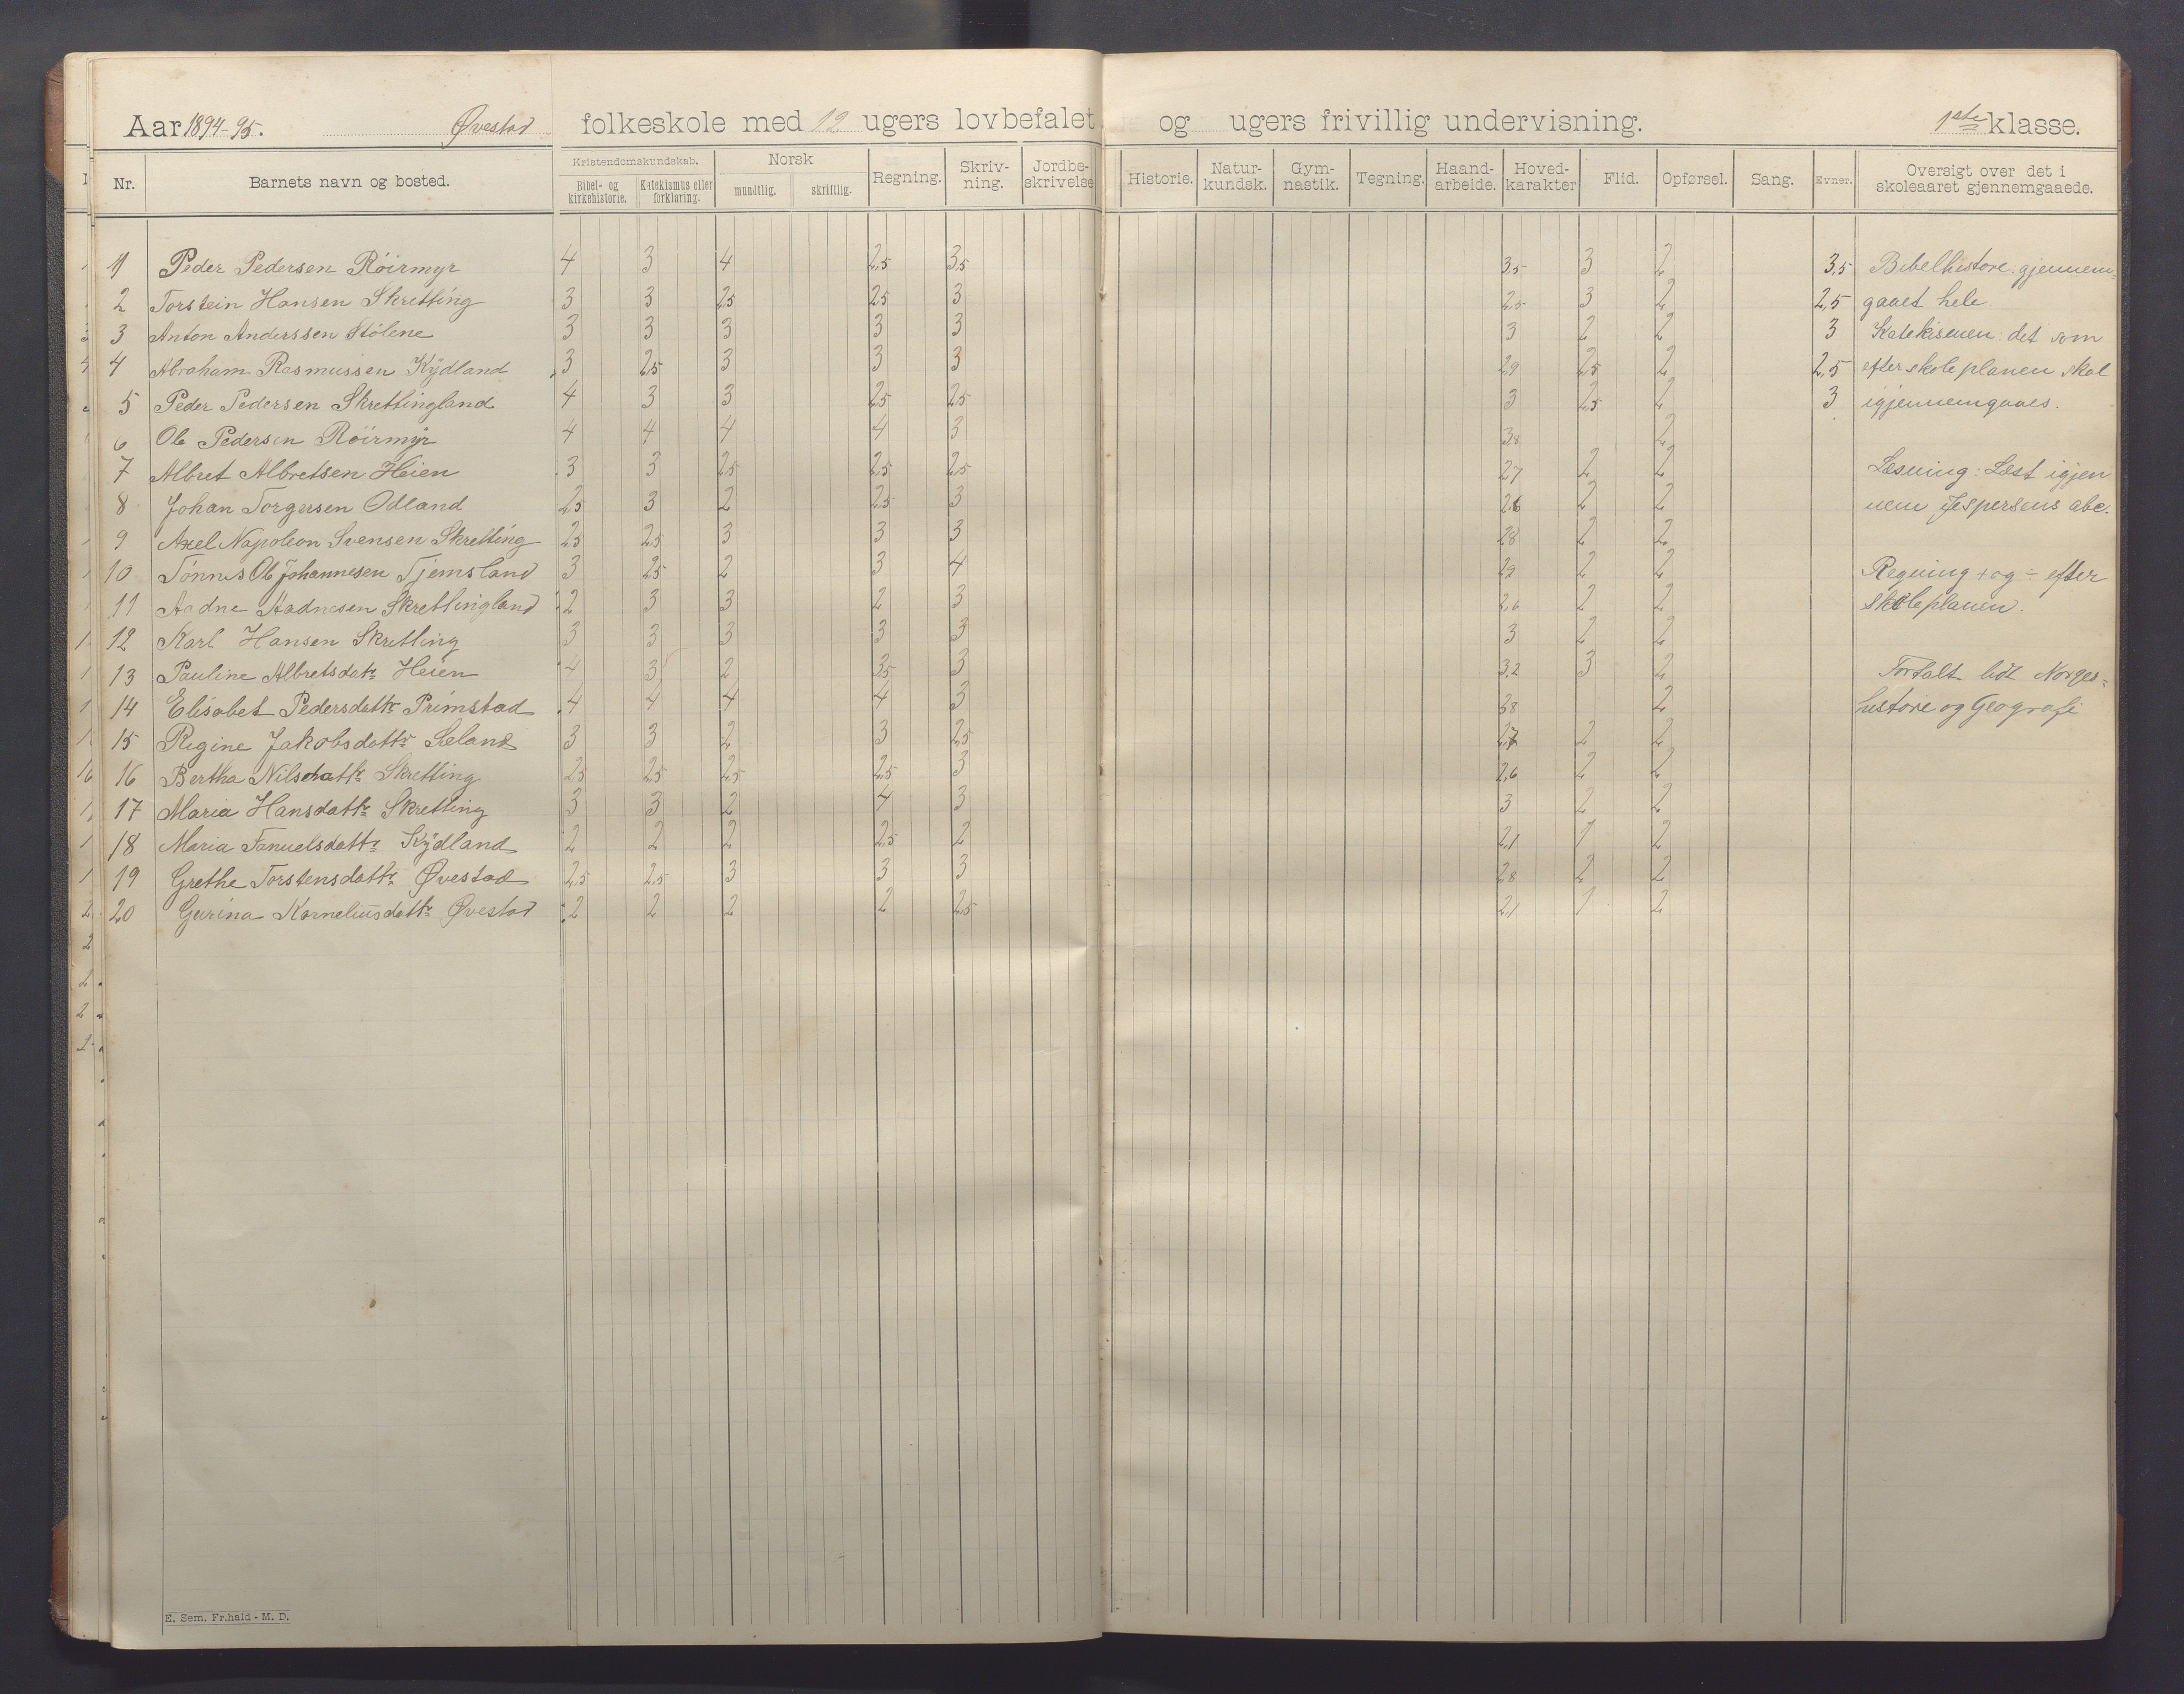 Aar 1894-95. Øvestad folkeskole med 12 ugers lovbefalet og ugers frivillig undervisning. 1ste klasse.
Nr. Barnets navn og bosted. Kristendomskundskab. Bibel- og kirkehistorie. Katekismus eller forklaring. Norsk mundtlig. skriftlig. Regning. Skriv-ning. Jordbe-skrivelse Historie. Natur-kundsk. Gym-nastik. Tegning. Haand-arbeide. Hoved-karakter Flid. Opførsel. Sang. Evner. Oversigt over det i skoleaaret gjennemgaaede.
1 Peder Pedersen Röirmyr 4 3 4 2,5 3,5 3,5 3 2 3,5 Bibelhistore: gjennem-
2 Torstein Hansen Skretting 3 3 2,5 2,5 3 2,5 3 2 2,5 gaaet hele.
3 Anton Anderssen Stölene 3 3 3 3 3 3 2 2 3 Katekismen: det som
4 Abraham Rasmussen Kÿdland 3 2,5 3 3 3 2,9 2,5 2 2,5 efter skoleplanen skal
5 Peder Pedersen Skrettingland 4 3 3 2,5 2,5 3 2,5 2 3 igjennemgaaes.
6 Ole Pedersen Röirmyr 4 4 4 4 3 3,8 2
7 Albret Albretsen Heien 3 3 2,5 2,5 2,5 2,7 2 2 Læsning: Læst igjen
8 Johan Torgersen Odland 2,5 3 2 2,5 3 2,6 2 2 nem Jespersens abc.
9 Axel Napoleon Svensen Skretting 2,5 2,5 3 3 3 2,8 2 2
10 Tönnes Ole Johannesen Tjemsland 3 2,5 2 3 4 2,9 2 2 Regning + og ÷ efter
11 Aadne Aadnesen Skrettingland 2 3 3 2 3 2,6 2 2 skoleplanen.
12 Karl Hansen Skretting 3 3 3 3 3 3 2 2
13 Pauline Albretsdatr Heien 4 3 2 3,5 3 3,2 3 2 Fortalt lidt Norges-
14 Elisabet Pedersdattr Primstad 4 4 4 4 3 3,8 2 histore og Geografi
15 Regine Jakobsdattr Seland 3 3 2 3 2,5 2,7 2 2
16 Bertha Nilsdattr Skretting 2,5 2,5 2,5 2,5 3 2,6 2 2
17 Maria Hansdattr Skretting 3 3 2 4 3 3 2 2
18 Maria Fanuelsdattr Kÿdland 2 2 2 2,5 2 2,1 1 2
19 Grethe Torstensdattr Øvestad 2,5 2,5 3 3 3 2,8 2 2
20 Gurina Korneliusdattr Øvestad 2 2 2 2 2,5 2,1 1 2
E. Sem, Fr.hald - M. D.